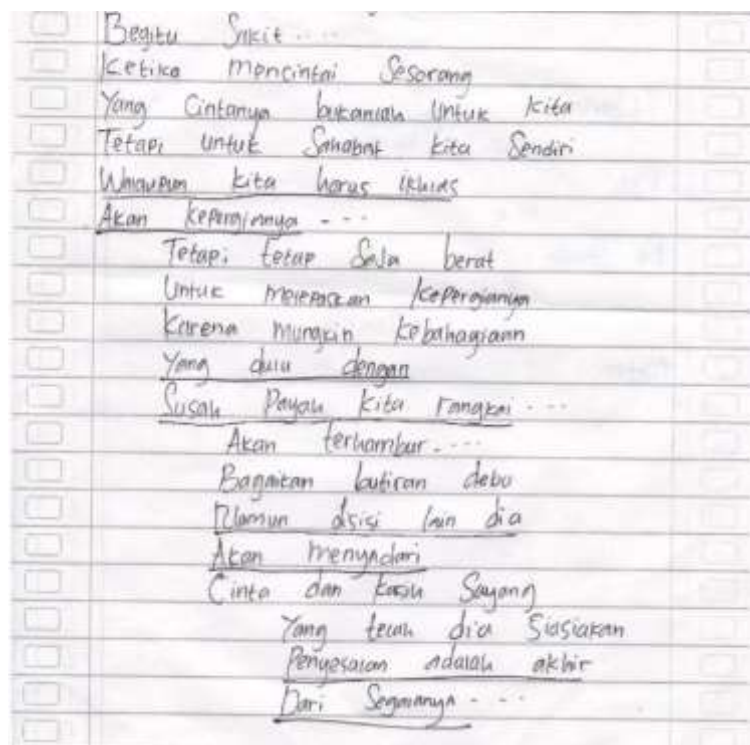 Begitu Sakit ....
Ketika mencintai Sesorang
Yang Cintanya bukanlah Untuk kita
Tetapi untuk Sahabat kita Sendiri
Walaupun kita harus ikhlas
Akan kepergiannya - - -
Tetapi tetap Saja berat
Untuk melepaskan kepergianya
Karena mungkin kebahagiaan
Yang dulu dengan
Susah Payah kita rangkai - - -
Akan terhambur. - - -
Bagaikan butiran debu
Namun disisi lain dia
Akan menyadari
Cinta dan kasih Sayang
Yang telah dia Siasiakan
Penyesalan adalah akhir
Dari Segalanya - - -